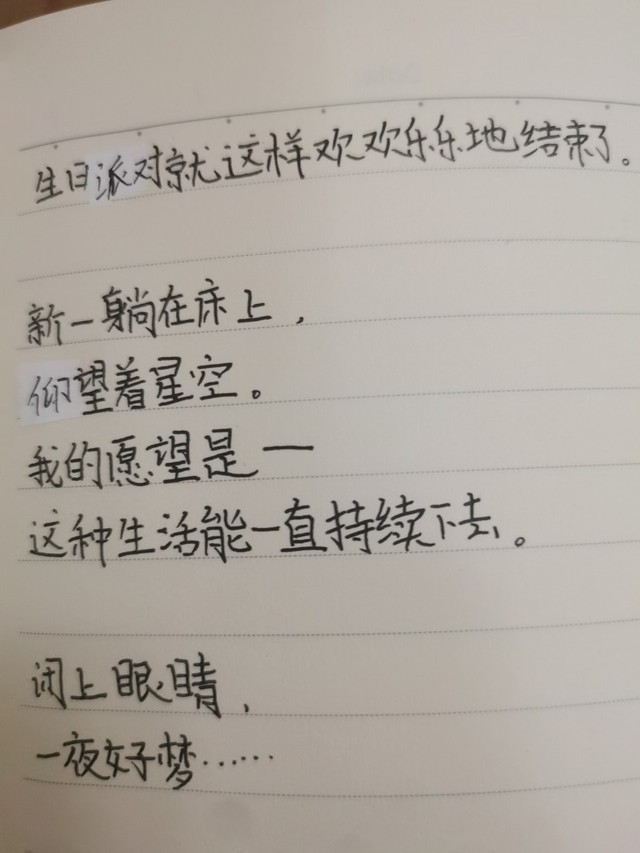 生日派对就这样欢欢乐乐地结束了。
新一躺在床上，
仰望着星空。
我的愿望是一
这种生活能一直持续下去。
闭上眼睛，
一夜好梦……